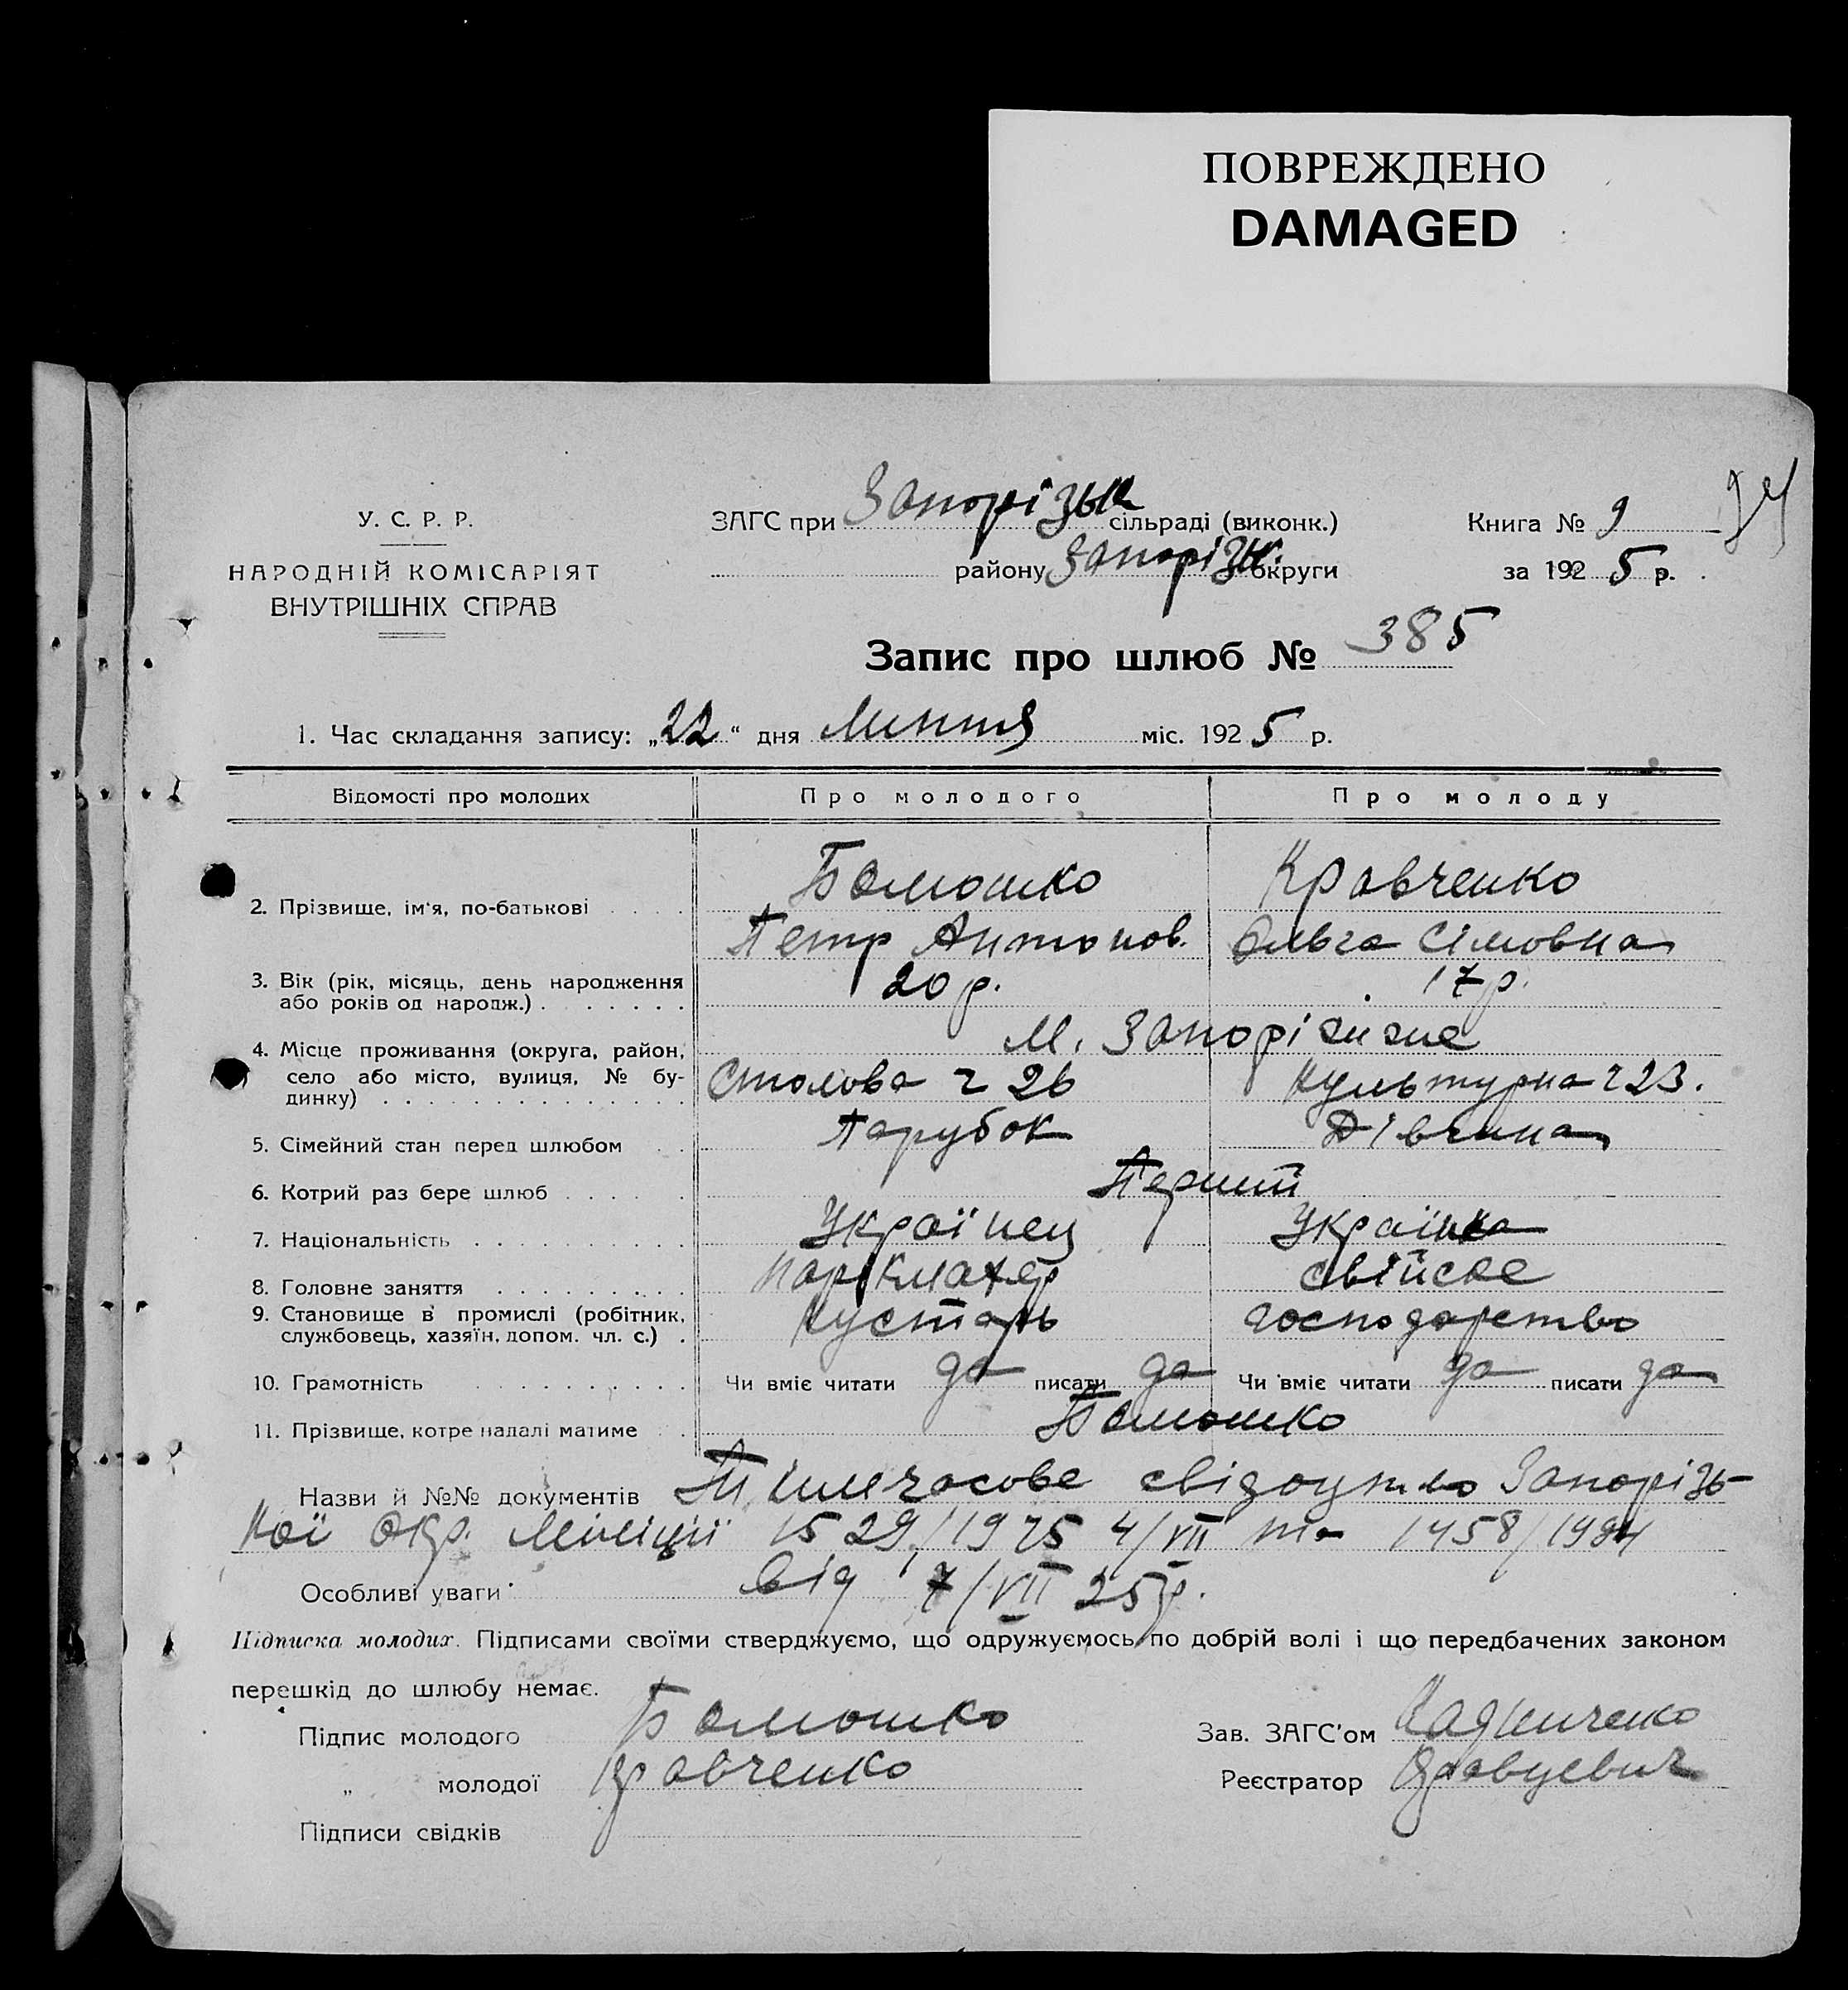 ПОВРЕЖДЕНО
DAMAGED
У. С. Р. Р.
НАРОДНІЙ КОМІСАРІЯТ
ВНУТРІШНІХ СПРАВ
ЗАГС при Запорізьк сільраді (виконк.)
району Запорізьк. округи
Книга № 9
за 1925 р.
Запис про шлюб № 385
1. Час складання запису: „22“ дня Липня міс. 1925 р.
Відомості про молодих Про молодого Про молоду
2. Прізвище, ім'я, по-батькові Кравченко
Петр Антонов. Ольга Сімовна
3. Вік (рік, місяць, день народження або років од народж.) 20 р. 17 р.
4. Місце проживання (округа, район, село або місто, вулиця, № будинку) м. Запоріжжє
Столова ч 26 Культурна ч 23.
5. Сімейний стан перед шлюбом Парубок Дівчина
6. Котрий раз бере шлюб Перший
7. Національність Українец Українка
8. Головне заняття Парікмахер свійське
9. Становище в промислі (робітник, службовець, хазяїн, допом. чл. с.) Кустарь господарство
10. Грамотність Чи вміє читати да писати да Чи вміє читати да писати да
11. Прізвище, котре надалі матиме
Назви й №№ документів Тимчасове свідоцтво Запорізь-
кої окр. Міліції 1529/1975 4/VII та 1458/1984
Особливі уваги від 7/VII 25 р.
Підписка молодих. Підписами своїми стверджуємо, що одружуємось по добрій волі і що передбачених законом
перешкід до шлюбу немає.
Підпис молодого
„ молодої Кравченко
Підписи свідків
Зав. ЗАГС'ом
Реєстратор Кравцевич